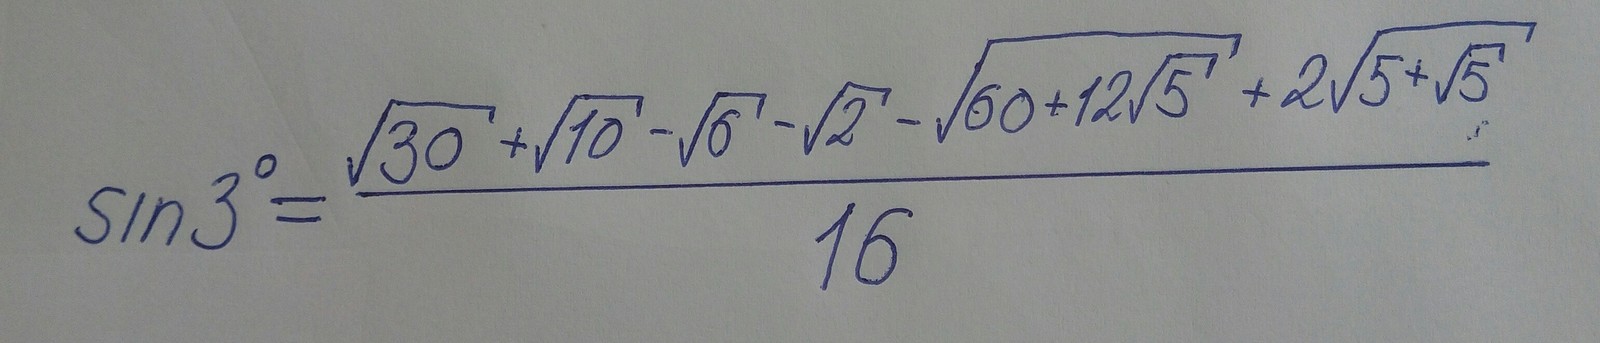 sin3° = (√30 + √10 - √6 - √2 - √(60+12√5) + 2√(5+√5)) / 16